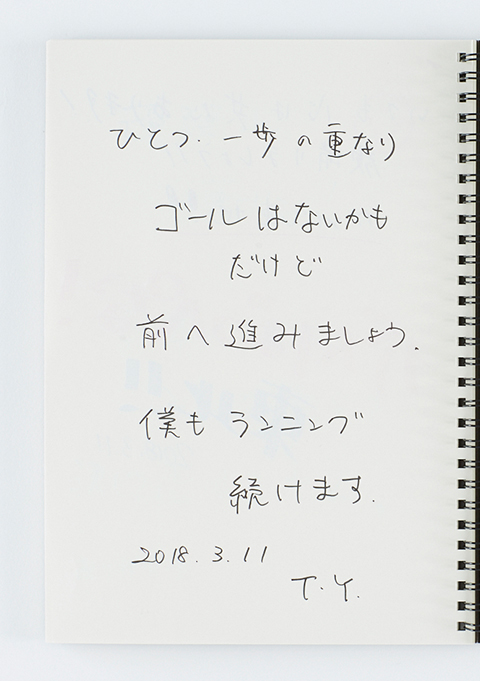 ひとつ.一歩の重なり
ゴールはないかも
だけど
前へ進みましょう.
僕もランニング
続けます.
2018.3.11
T.Y.